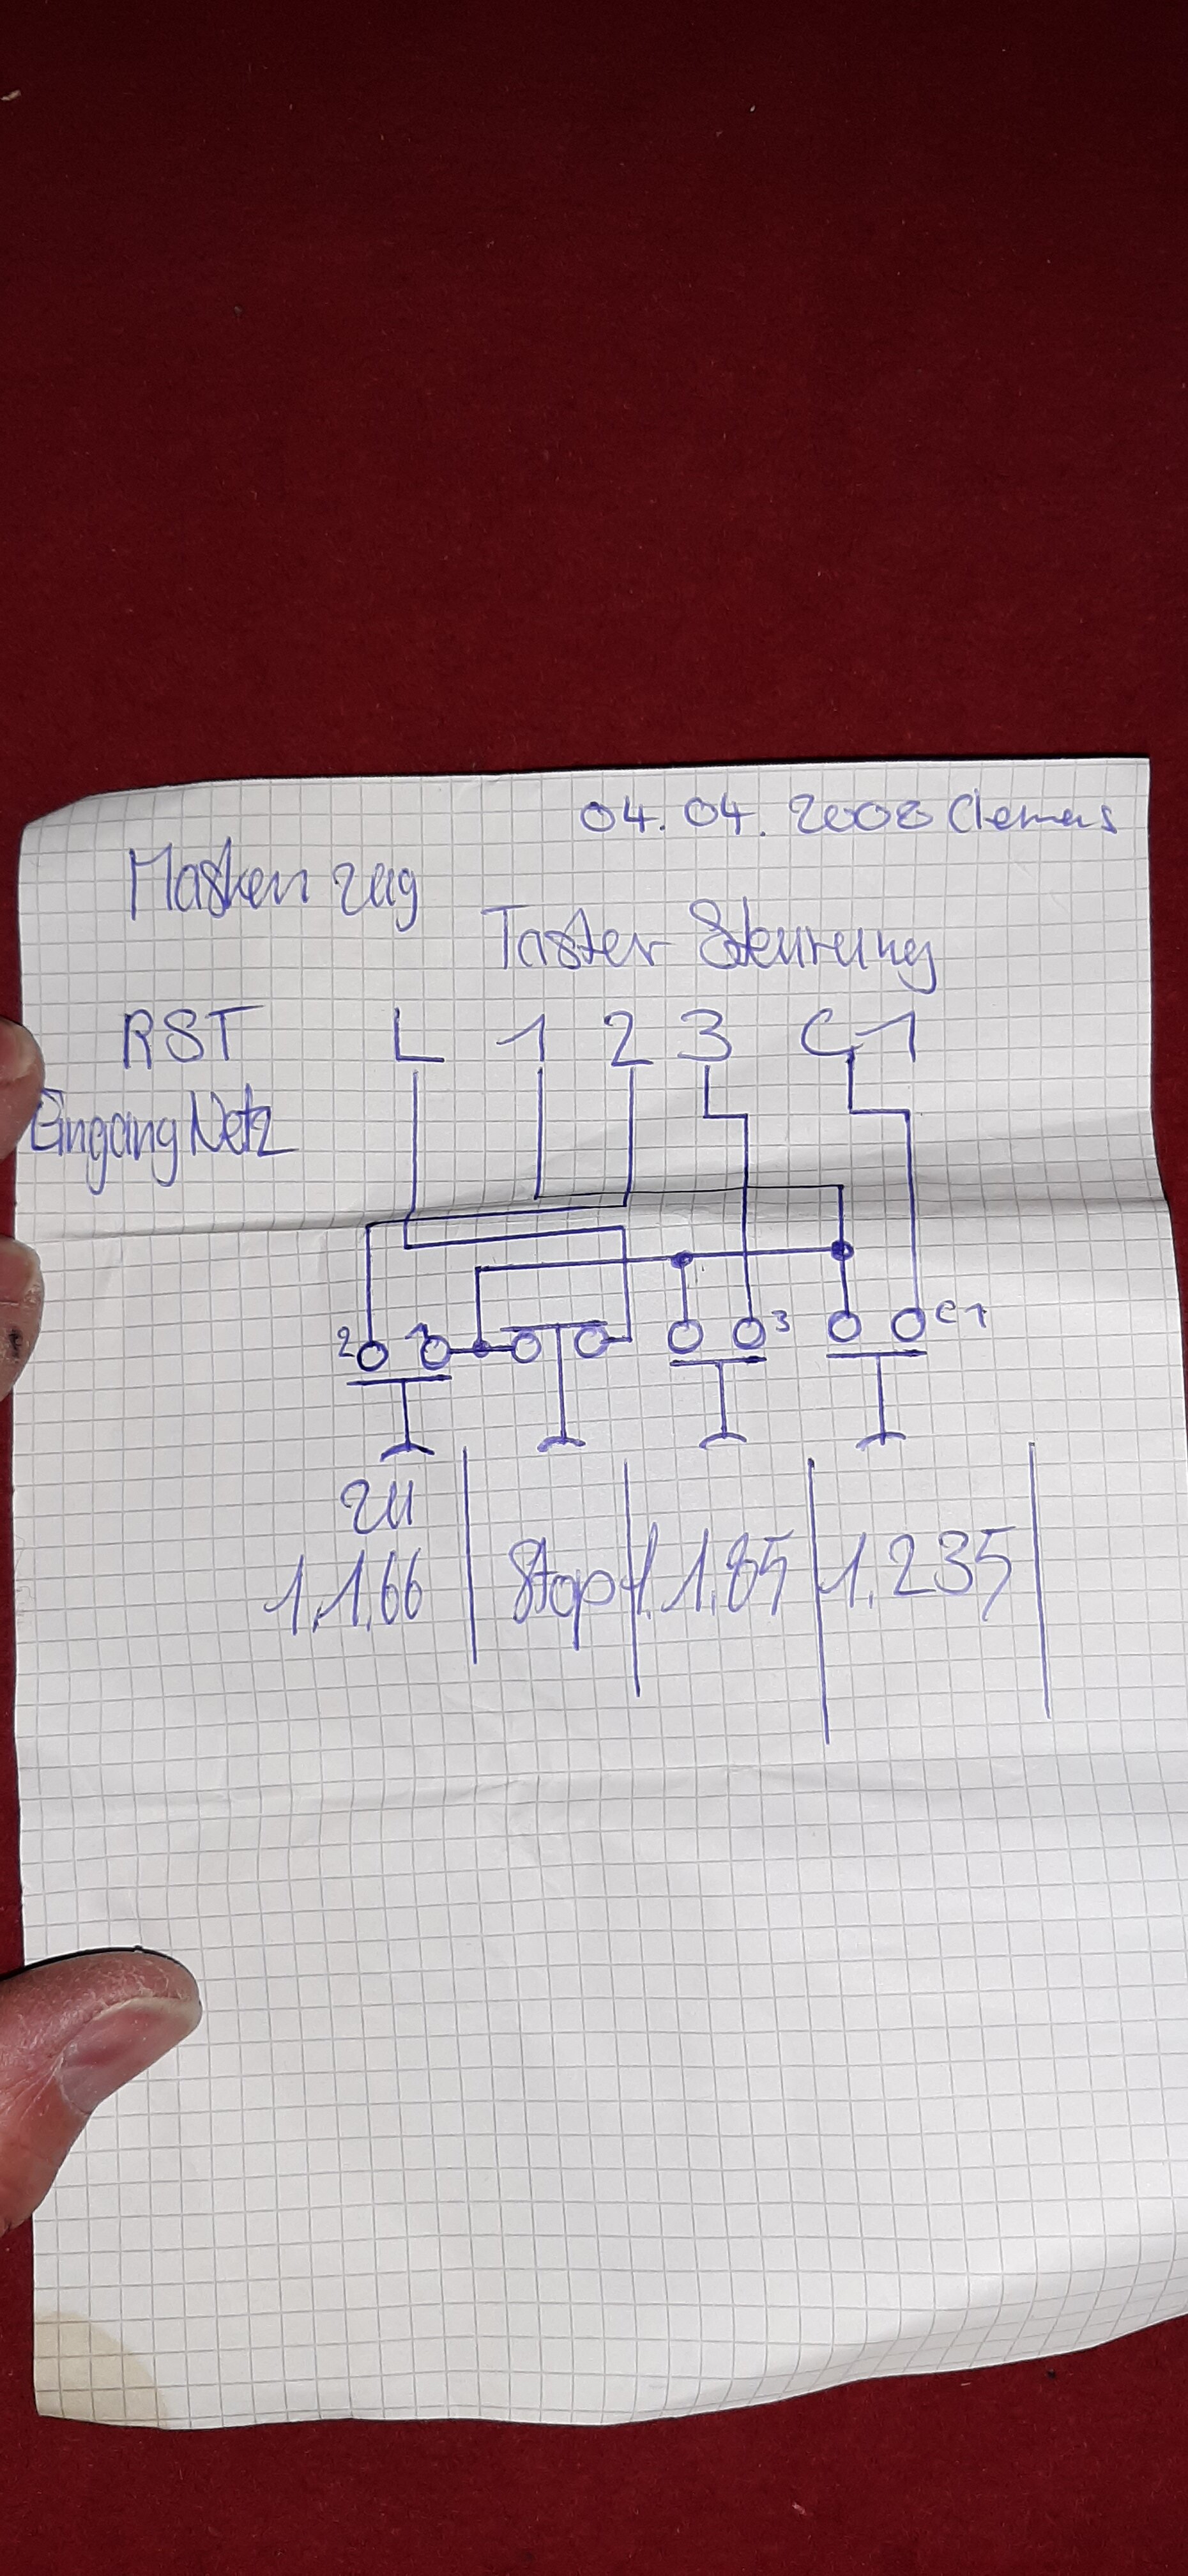 04.04.2008 Clemens
Masken zug
Taster Steurung
RST L 1 2 3 C1
Eingang Netz
2 1 3 C1
zu
1.1,66 Stop 1.1,85 1.235